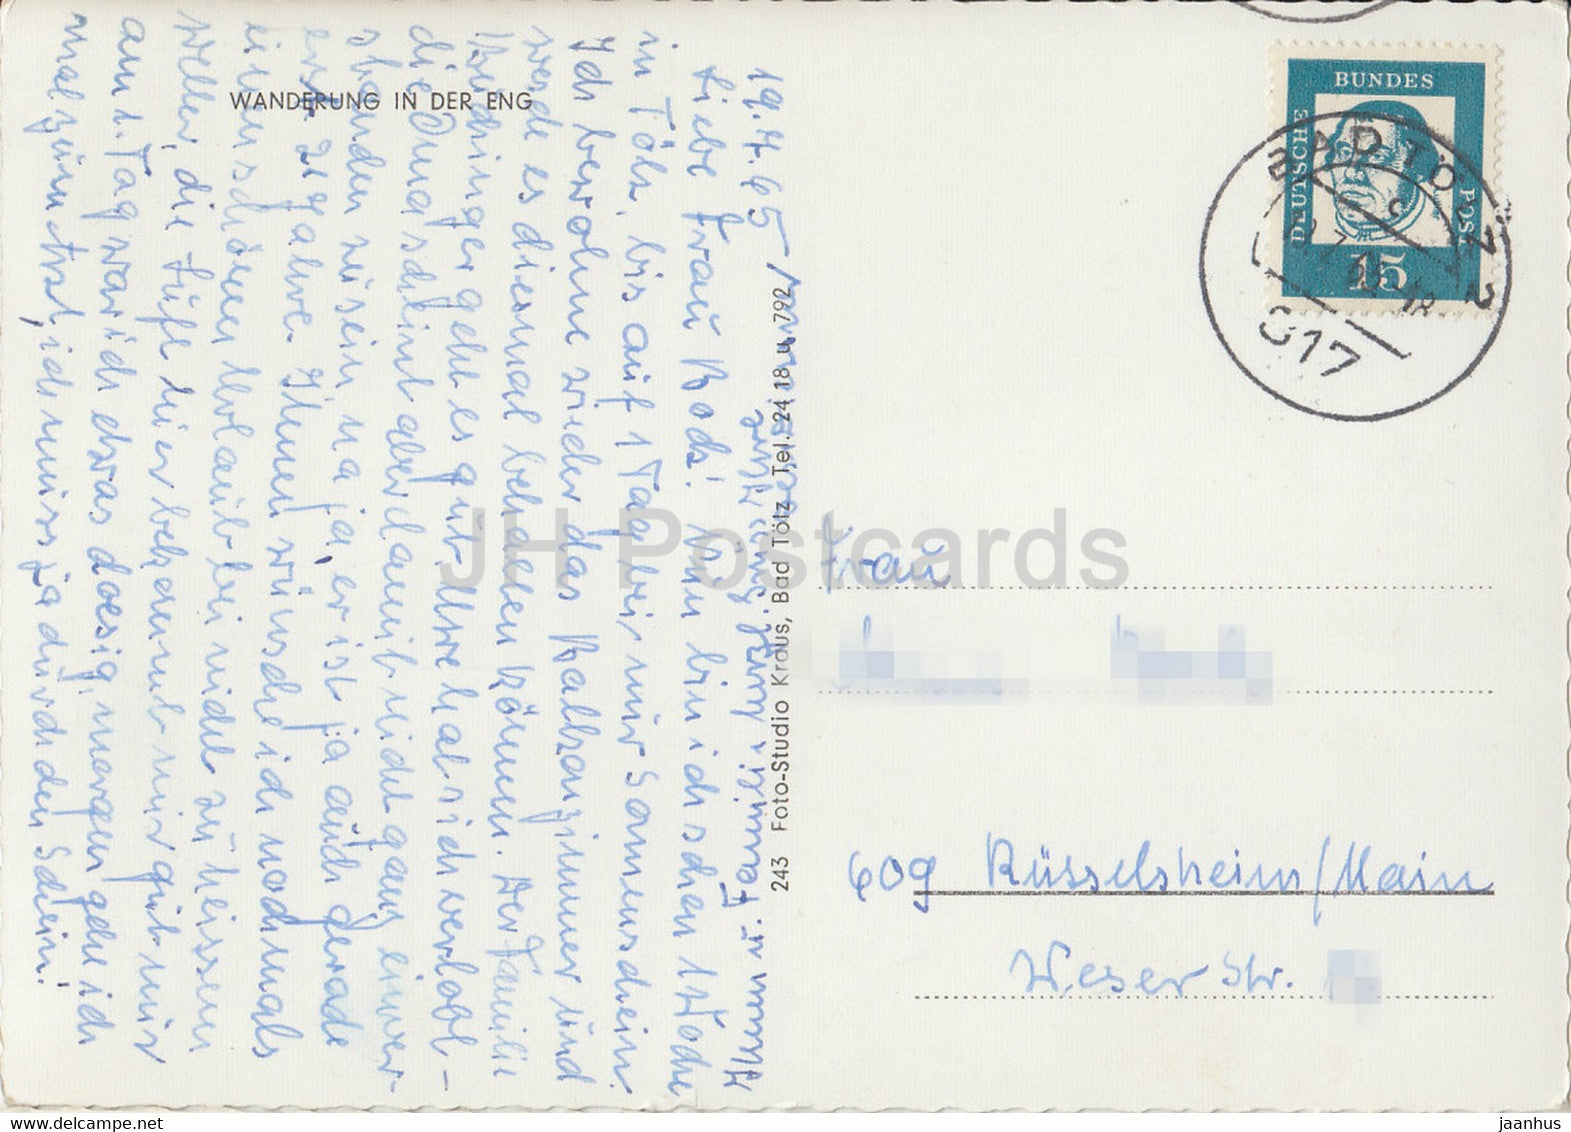 WANDERUNG IN DER ENG
19.7.65
Liebe Frau Koch! Nun bin ich schon 1 Woche
in Tölz, bis auf 1 Tag bei nur Sonnenschein.
Ich bewohne wieder das Balkonzimmer und
werde es diesmal behalten können. Der Familie
geht es gut. Uwe hat sich verlobt –
die Oma scheint aber damit nicht ganz einver-
standen zu sein, na ja, er ist ja auch gerade
erst 21 Jahre. Ihnen wünsche ich nochmals
einen schönen Urlaub bei nicht zu heissem
Wetter, die Luft hier bekommt mir gut, nur
am 1. Tag war ich etwas doesig, morgen gehe ich
mal zum Arzt, ich muss ja durch den Schein!
243 Foto-Studio Kraus, Bad Tölz, Tel. 24 18 u. 792
DEUTSCHE
BUNDES
POST
15
BAD TÖLZ 2
817
Frau
609 Rüsselsheim/Main
Weser Str.
JH Postcards
jaanhus